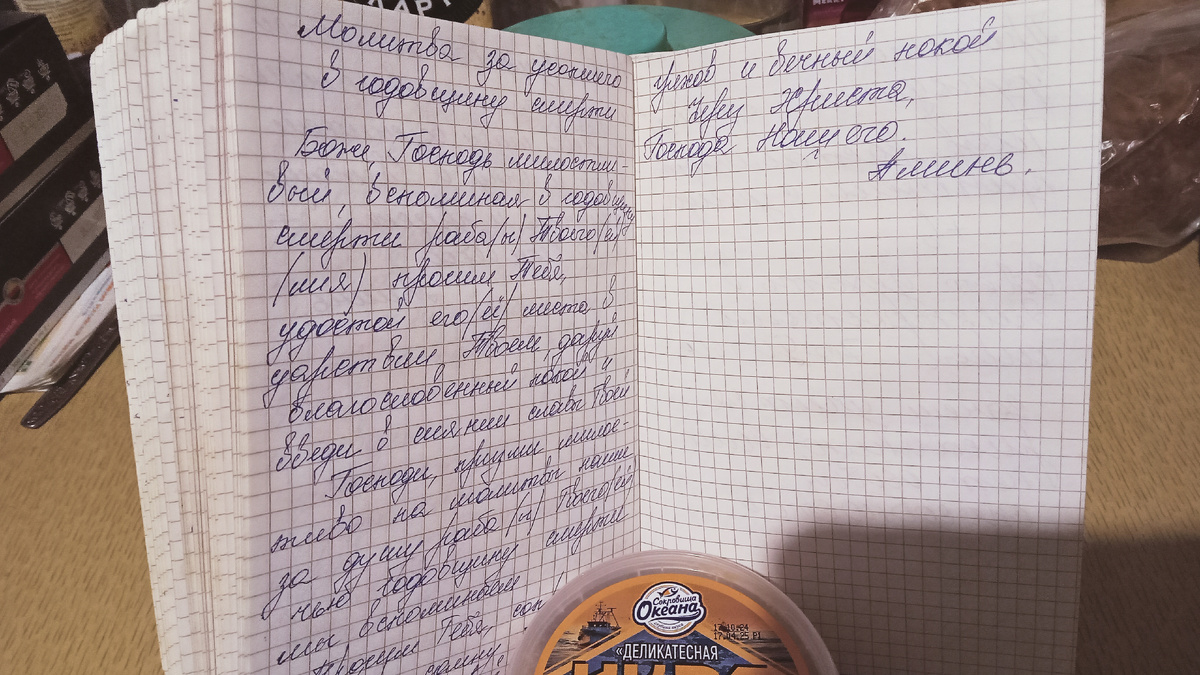 Молитва за усопшего
в годовщину смерти
Боже, Господь милости-
вый, вспоминая в годовщину
смерти раба(ы) Твоего(ей)
(имя) просим Тебя,
удостой его(её) места в
царствии Твоем, даруй
благословенный покой и
введи в сияние славы Твоей
Господи, призри милос-
тиво на молитвы наши
за душу раба(ы) Твоего(ей)
чью годовщину смерти
мы вспоминаем
просим Тебя,
сонму
и вечный покой
Христа,
Господа нашего.
Аминь.
Сокровища
Океана
17.10.24
17.04.25 P1
«ДЕЛИКАТЕСНАЯ